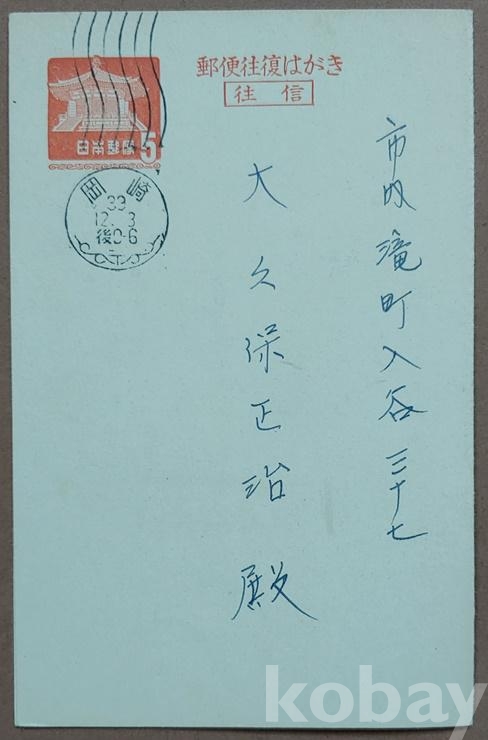 郵便往復はがき
往信
日本郵便
5
岡崎
33
12.3
後0-6
市内滝町入谷三十七
大久保正治殿
kobay